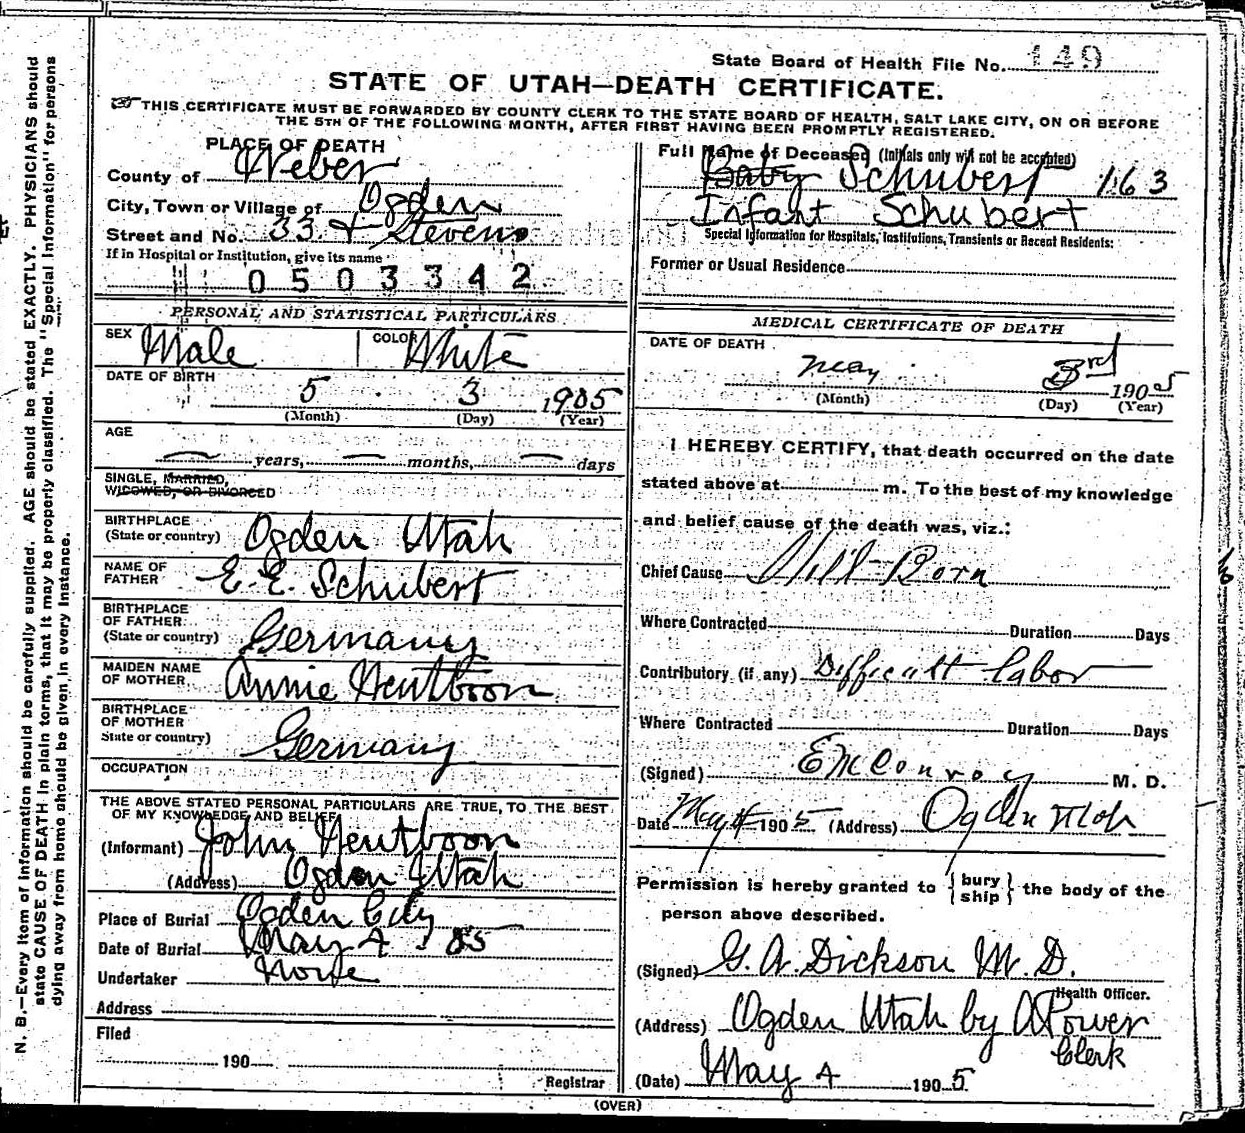 State Board of Health File No. 149
STATE OF UTAH—DEATH CERTIFICATE.
THIS CERTIFICATE MUST BE FORWARDED BY COUNTY CLERK TO THE STATE BOARD OF HEALTH, SALT LAKE CITY, ON OR BEFORE
THE 5TH OF THE FOLLOWING MONTH, AFTER FIRST HAVING BEEN PROMPTLY REGISTERED.
PLACE OF DEATH
County of Weber
City, Town or Village of Ogden
Street and No. 33 & Stevens
If in Hospital or Institution, give its name
0503342
PERSONAL AND STATISTICAL PARTICULARS
SEX Male COLOR White
DATE OF BIRTH
5 3 1905
(Month) (Day) (Year)
AGE
years, months, days
SINGLE, MARRIED,
WIDOWED, OR DIVORCED
BIRTHPLACE
(State or country) Ogden Utah
NAME OF
FATHER E. E. Schubert
BIRTHPLACE
OF FATHER
(State or country) Germany
MAIDEN NAME
OF MOTHER Annie Hentboon
BIRTHPLACE
OF MOTHER
State or country) Germany
OCCUPATION
THE ABOVE STATED PERSONAL PARTICULARS ARE TRUE, TO THE BEST
OF MY KNOWLEDGE AND BELIEF
(Informant) John Hentboon
(Address) Ogden Utah
Place of Burial Ogden City
Date of Burial May 4 05
Undertaker None
Address
Filed
190
Registrar
Full Name of Deceased (Initials only will not be accepted)
Baby Schubert 163
Infant Schubert
Special Information for Hospitals, Institutions, Transients or Recent Residents:
Former or Usual Residence
MEDICAL CERTIFICATE OF DEATH
DATE OF DEATH
May 3rd 1905
(Month) (Day) (Year)
I HEREBY CERTIFY, that death occurred on the date
stated above at m. To the best of my knowledge
and belief cause of the death was, viz.:
Chief Cause Still-Born
Where Contracted Duration Days
Contributory (if any) Difficult labor
Where Contracted Duration Days
(Signed) E M Conroy M. D.
Date May 4 1905 (Address) Ogden Utah
Permission is hereby granted to { bury
ship } the body of the
person above described.
(Signed) G. A. Dickson M. D.
Health Officer.
(Address) Ogden Utah by A Power
Clerk
(Date) May 4 1905
(OVER)
N. B.—Every item of information should be carefully supplied. AGE should be stated EXACTLY. PHYSICIANS should
state CAUSE OF DEATH in plain terms, that it may be properly classified. The "Special Information" for persons
dying away from home should be given in every instance.